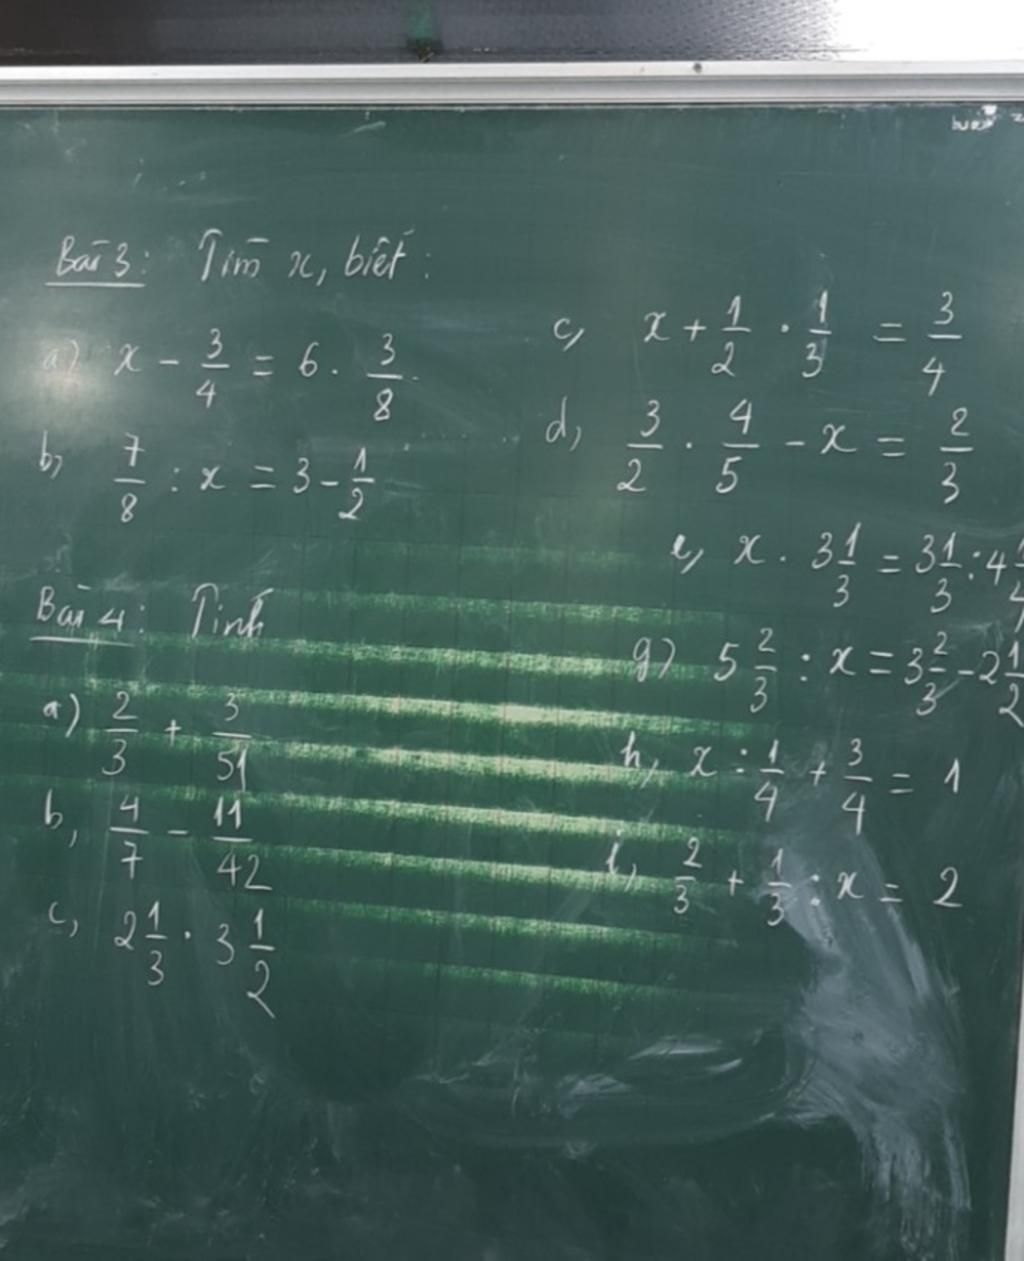 Bài 3: Tìm x, biết:
a) x - 3/4 = 6 . 3/8
b, 7/8 : x = 3 - 1/2
c, x + 1/2 . 1/3 = 3/4
d, 3/2 . 4/5 - x = 2/3
e, x . 3 1/3 = 3 1/3 : 4 1/4
g) 5 2/3 : x = 3 2/3 - 2 1/2
h, x : 1/4 + 3/4 = 1
i, 2/3 + 1/3 : x = 2
Bài 4: Tính
a) 2/3 + 3/51
b, 4/7 - 11/42
c, 2 1/3 . 3 1/2